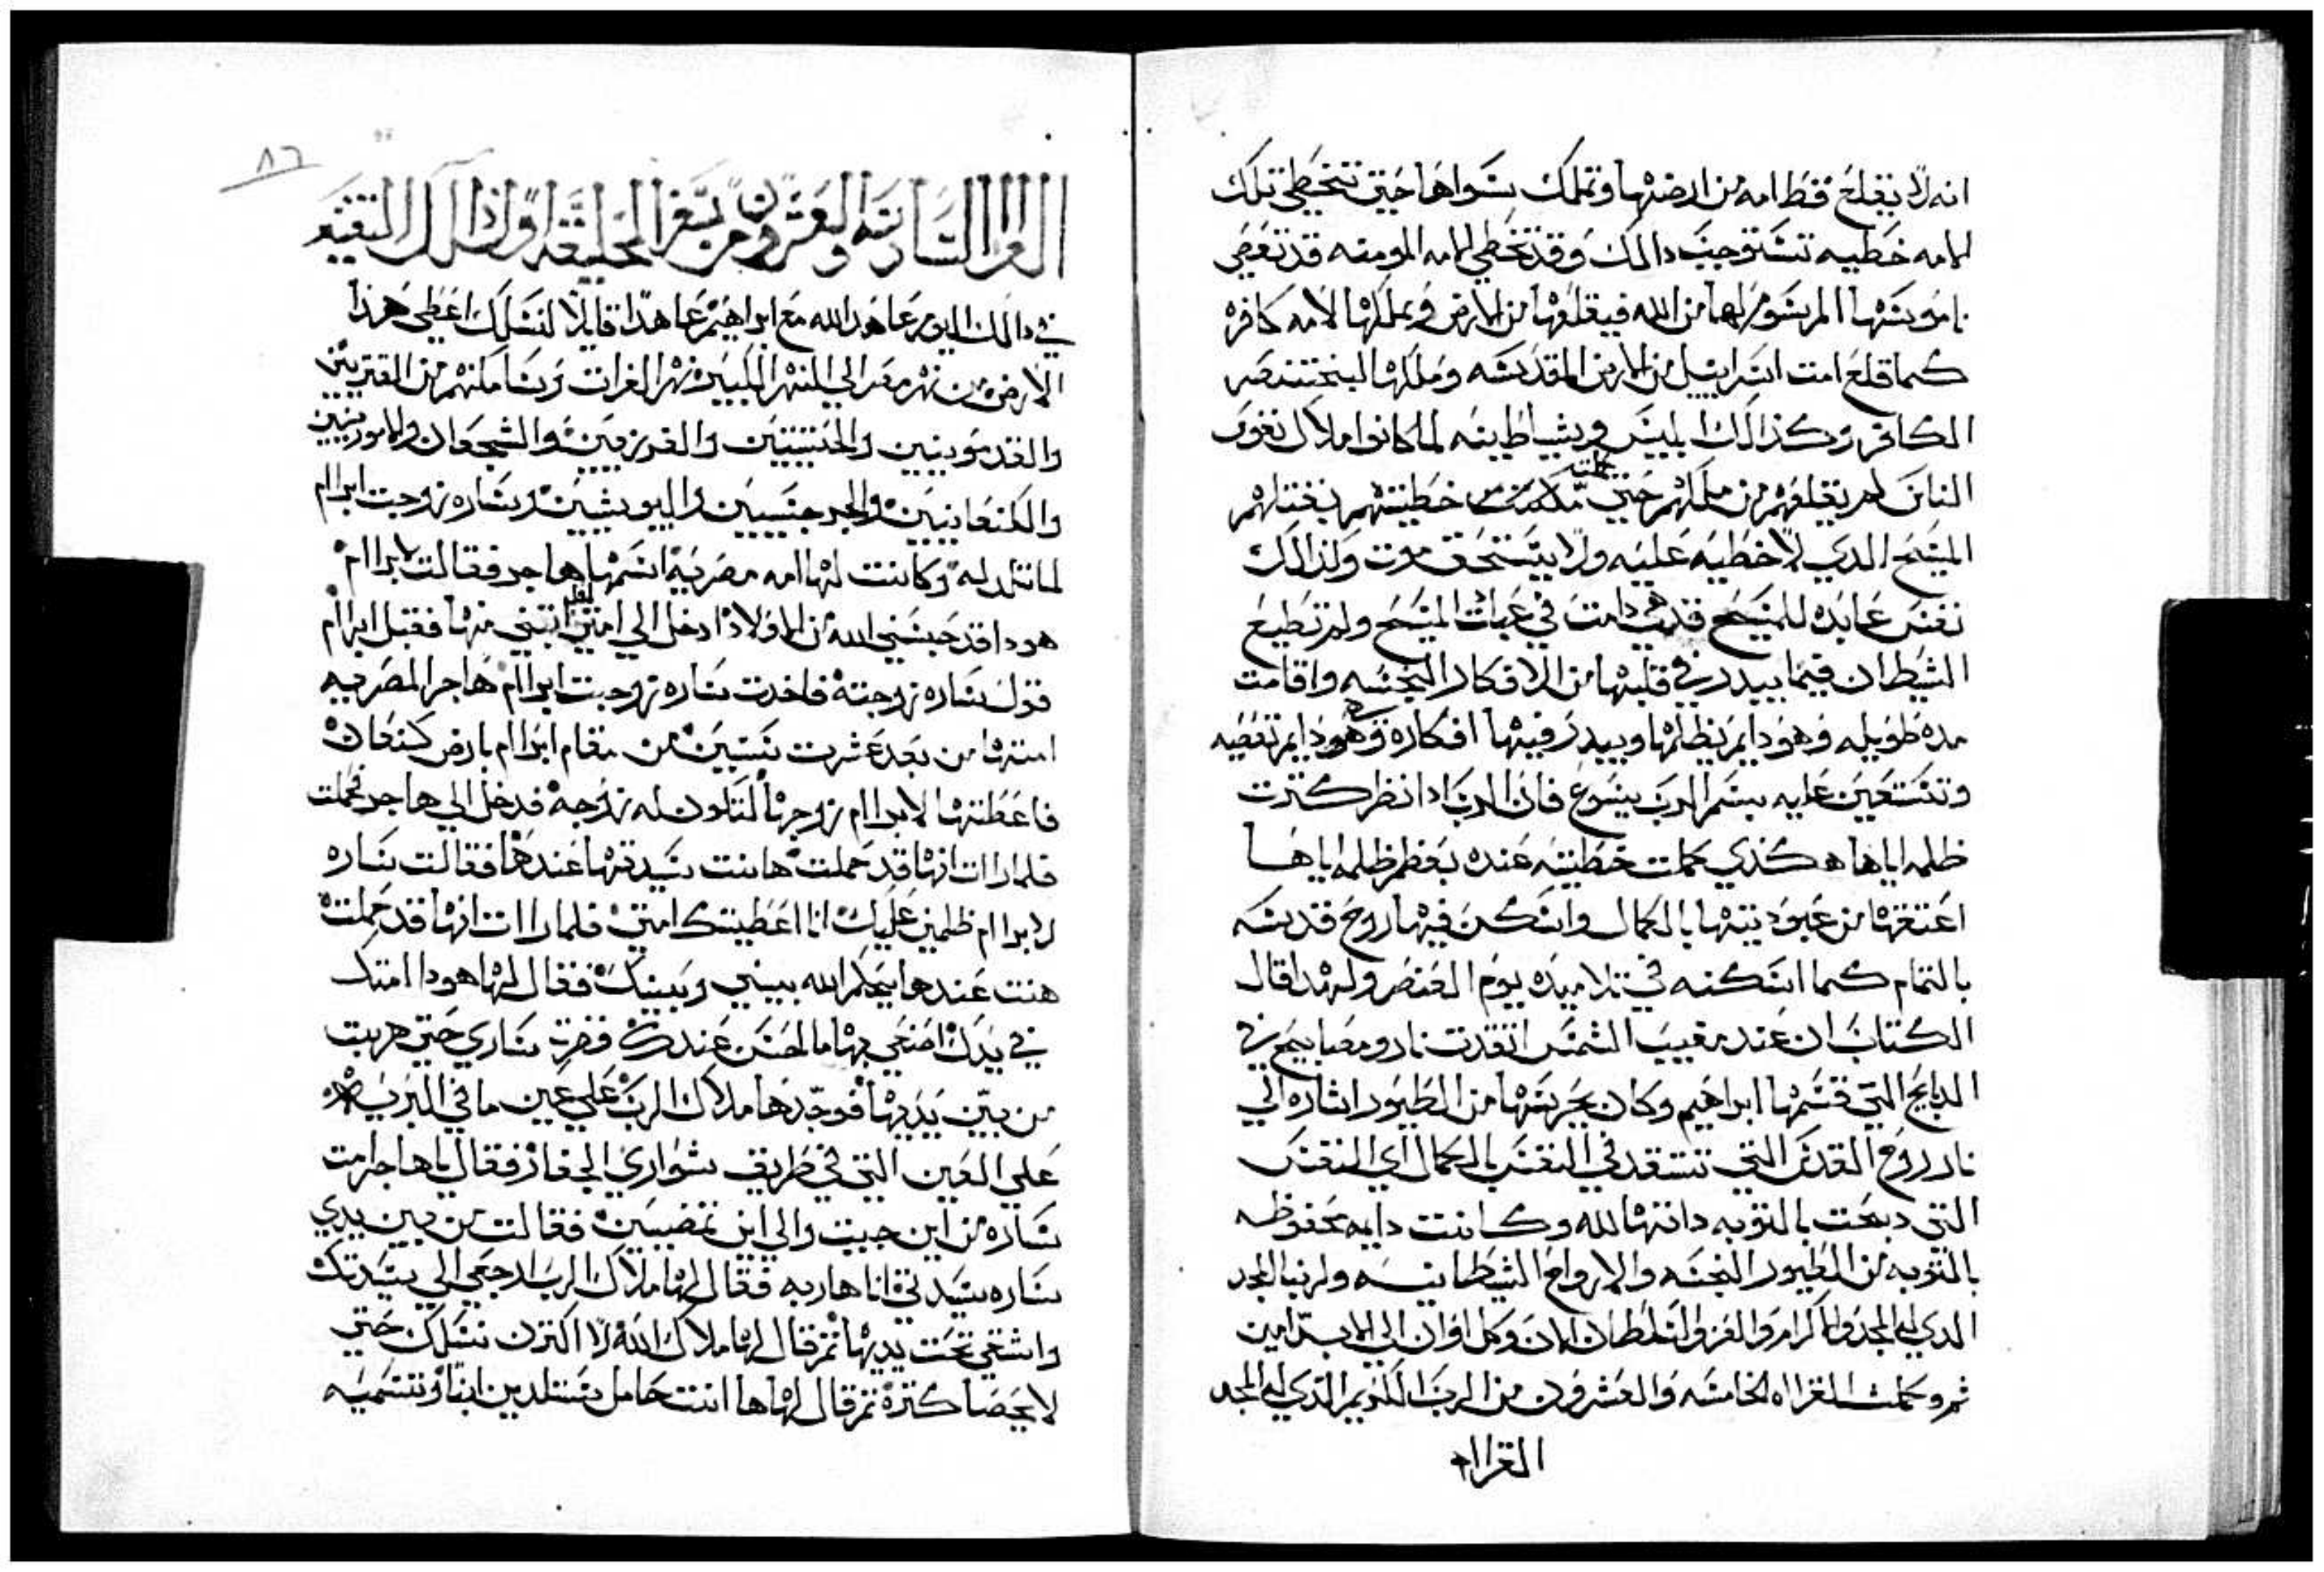 انه لا يقلع قط امه من ارضها وتملك سواها حتي تتخطي تلك
الامه خطيه تستوجب دالك وقد تخطي الامه المومنه قد تعصي
ناموسها المرسوم لها من الله فيقلعها من الارض ويملكها لامه كافره
كما قلع امت اسراييل من الارض المقدسه وملكها لبختنصر
الكافر وكذالك ابليس وشياطينه لما كانوا املاك نفوس
الناس لم يقلعهم من ملكهم حتي كملت خطيتهم بقتلهم
المسيح الدي لا خطيه عليه ولا يستحق موت ولذالك
نفس عابده للمسيح قد دامت في عبادت المسيح ولم تطيع
الشيطان فيما يبدر في قلبها من الافكار النجسه واقامت
مده طويله وهو دايم يظلمها ويبدر فيها افكاره وهي دايم تعصيه
وتستعين عليه بسم الرب يسوع فان الرب ادا نظر كترت
ظلمه اياها هكذي كملت خطيته عنده بعظم ظلمه اياها
اعتقها من عبوديته بالكمال واسكن فيها روح قدسه
بالتمام كما اسكنه في تلاميده يوم العنصره ولهدا قال
الكتاب ان عند مغيب الشمس اتقدت نار ومصابيح في
الدبايح التي قسمها ابراهيم وكان يحرسها من الطيور اشاره الي
نار روح القدس التي تتقد في النفس بالكمال اي النفس
التي دبحت بالتوبه داتها لله وكانت دايمه محفوظه
بالتوبه من الطيور النجسه والارواح الشيطانيه ولربنا المجد
الدي له المجد والاكرام والعز والسلطان الان وكل اوان الي الابد امين
تم وكملت القراه الخامسه والعشرون من الرب الكريم الدي له المجد
القراه
٨٦
القراه السادسه والعشرون من سفر الخليقه اولا قال النقيه
في دالك اليوم عاهد الله مع ابراهيم عاهدا قايلا لنسلك اعطي هذا
الارض من نهر مصر الي النهر الكبير نهر الفرات وساملنهم من القنزيين
والقدمونيين والحتيين والفرزيين والشجعان والاموريين
والكنعانيين والجرجسيين واليبوسيين وساره زوجت ابراام
لم تلد له وكانت لها امه مصريه اسمها هاجر فقالت لابراام
هودا قد حبسني الله من الاولاد ادخل الي امتي ابتني منها فقبل ابراام
قول ساره زوجته فاخدت ساره زوجت ابراام هاجر المصريه
امتها من بعد عشرت سنين من مقام ابراام بارض كنعان
فاعطتها لابراام زوجها لتكون له زوجه فدخل الي هاجر فحملت
فلما رات انها قد حملت هانت سيدتها عندها فقالت ساره
لابراام ظلمي عليك انا اعطيتك امتي فلما رات انها قد حملت
هنت عندها يحكم الله بيني وبينك فقال لها هودا امتك
في يدك اصنعي بها ما الحسن عندك فضرت ساري حتي هربت
من بين يديها فوجدها ملاك الرب علي عين ما في البريه
علي العين التي في طريق سواري الجفار فقال ياهاجر امت
ساره من اين جيت والي اين تمضيين فقالت من بين يدي
ساره سيدتي انا هاربه فقال لها ملاك الرب ارجعي الي سيدتك
واشقي تحت يديها تم قال لها ملاك الله لا اكترن نسلك حتي
لا يحصا كتره تم قال لها ها انتت حامل ستلدين ابنا وتسميه